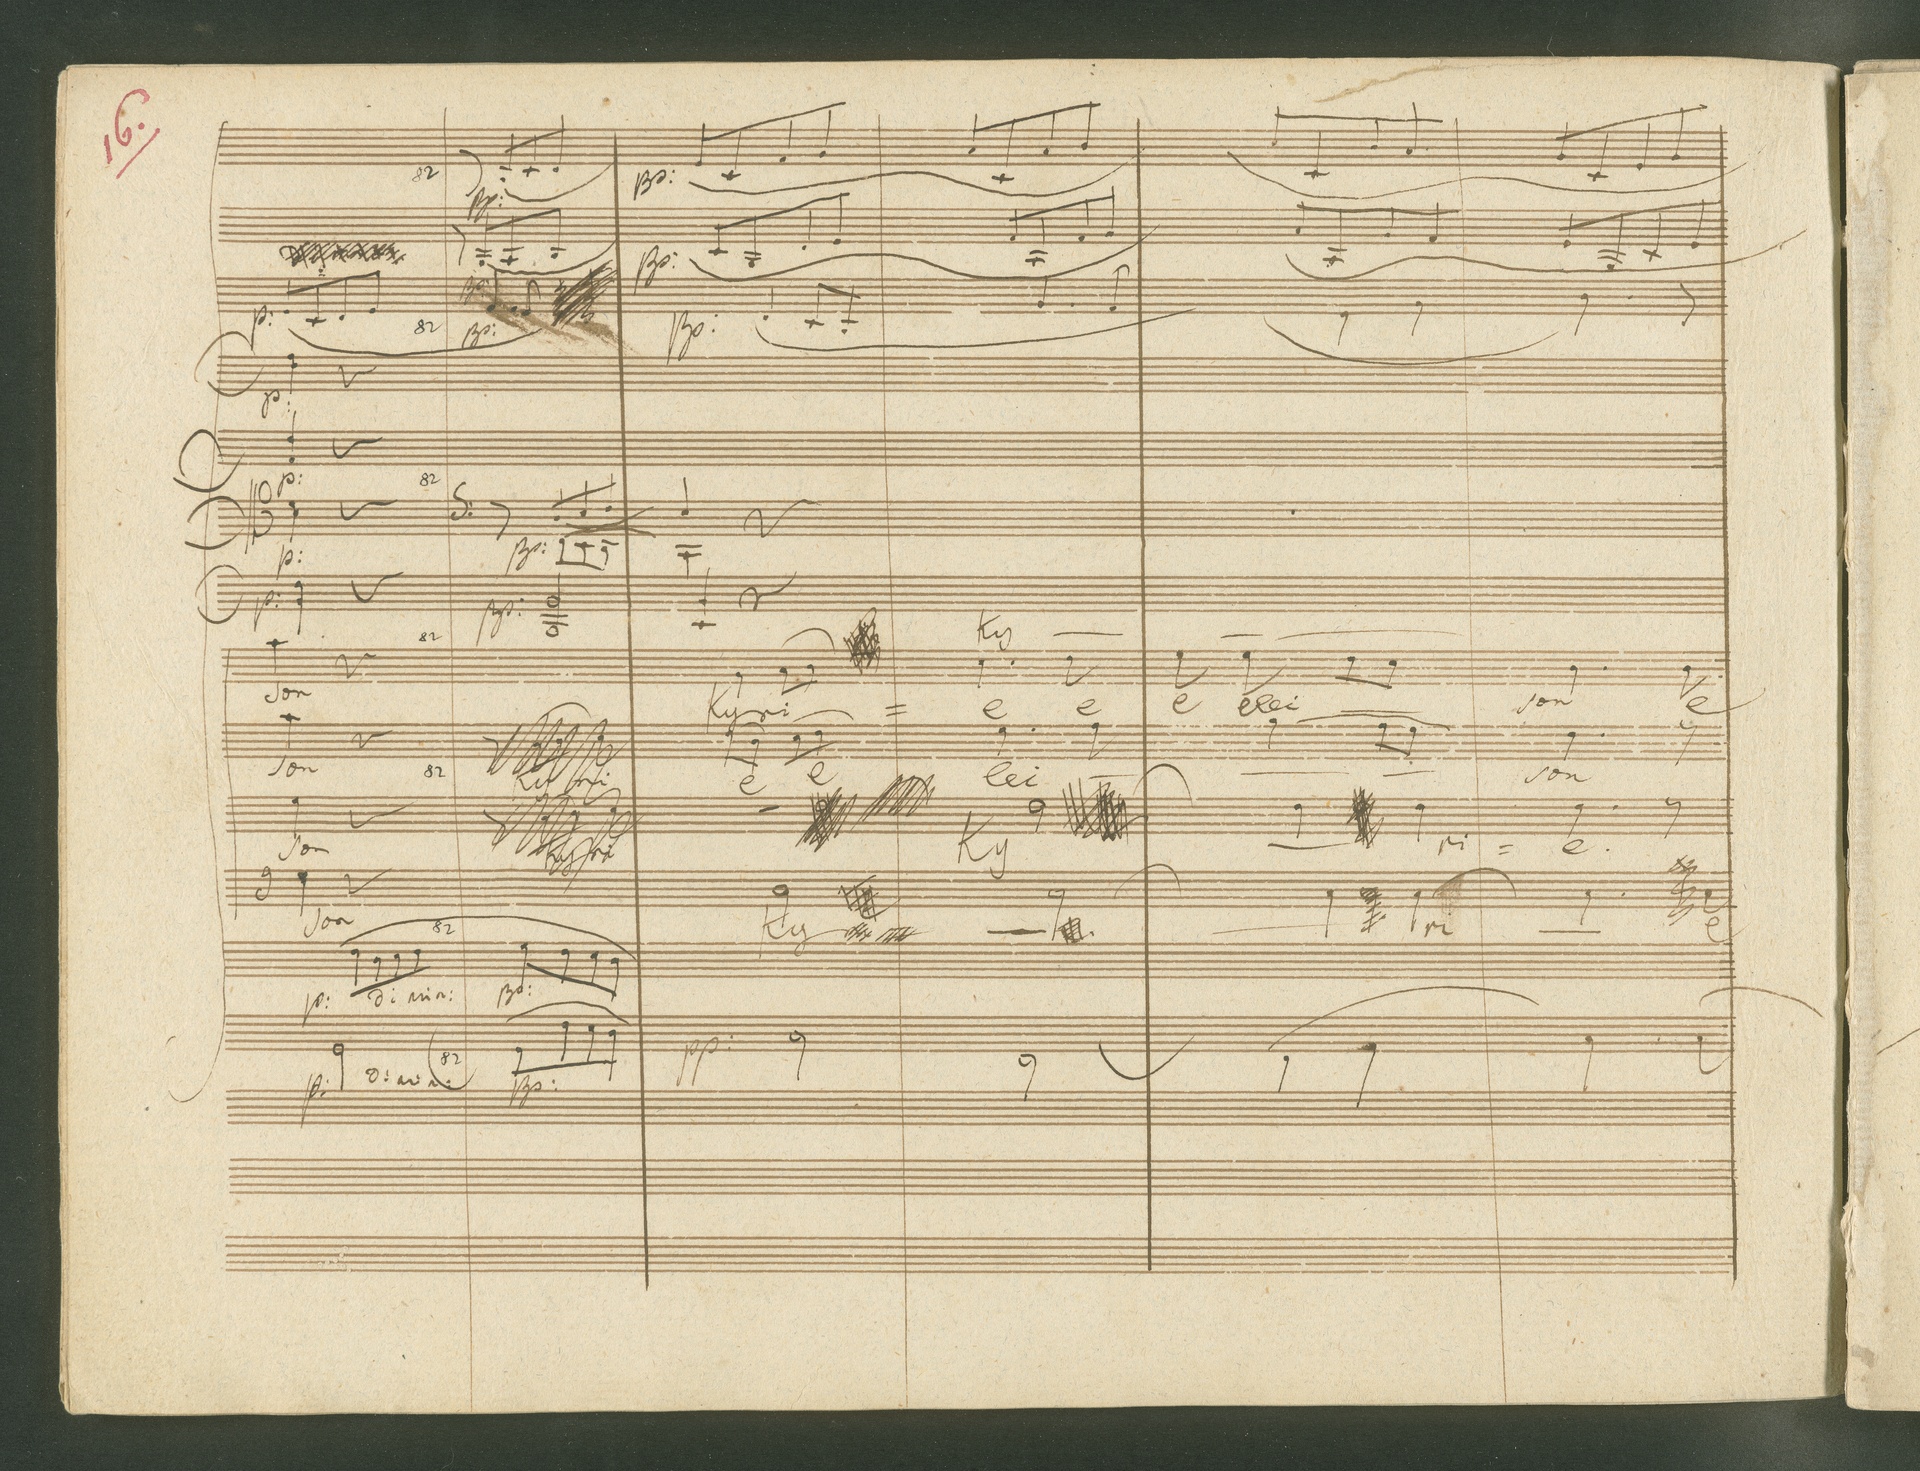 16.
82
pp:
pp: pp:
p: 82 pp: pp:
p:
p: 82
S:
p: pp:
p: pp:
82 Ky
son Kyri = e e e elei son e
son 82 Ky ri e e lei son
son Ky ri Ky ri = e.
son Ky ri e
82
p: dimin: pp:
p: dimin: 82 pp: pp: